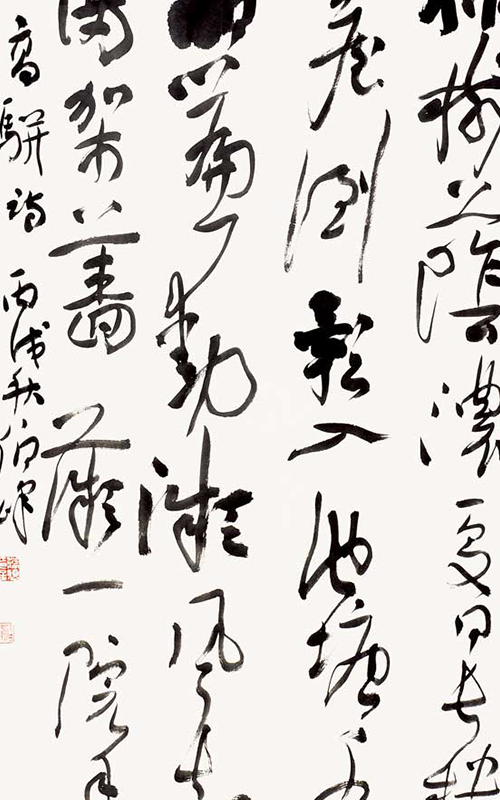 綠樹蔭濃夏日長樓
臺倒影入池塘水
晶簾動微風起
滿架薔薇一院香
高駢詩 丙戌秋伯峰